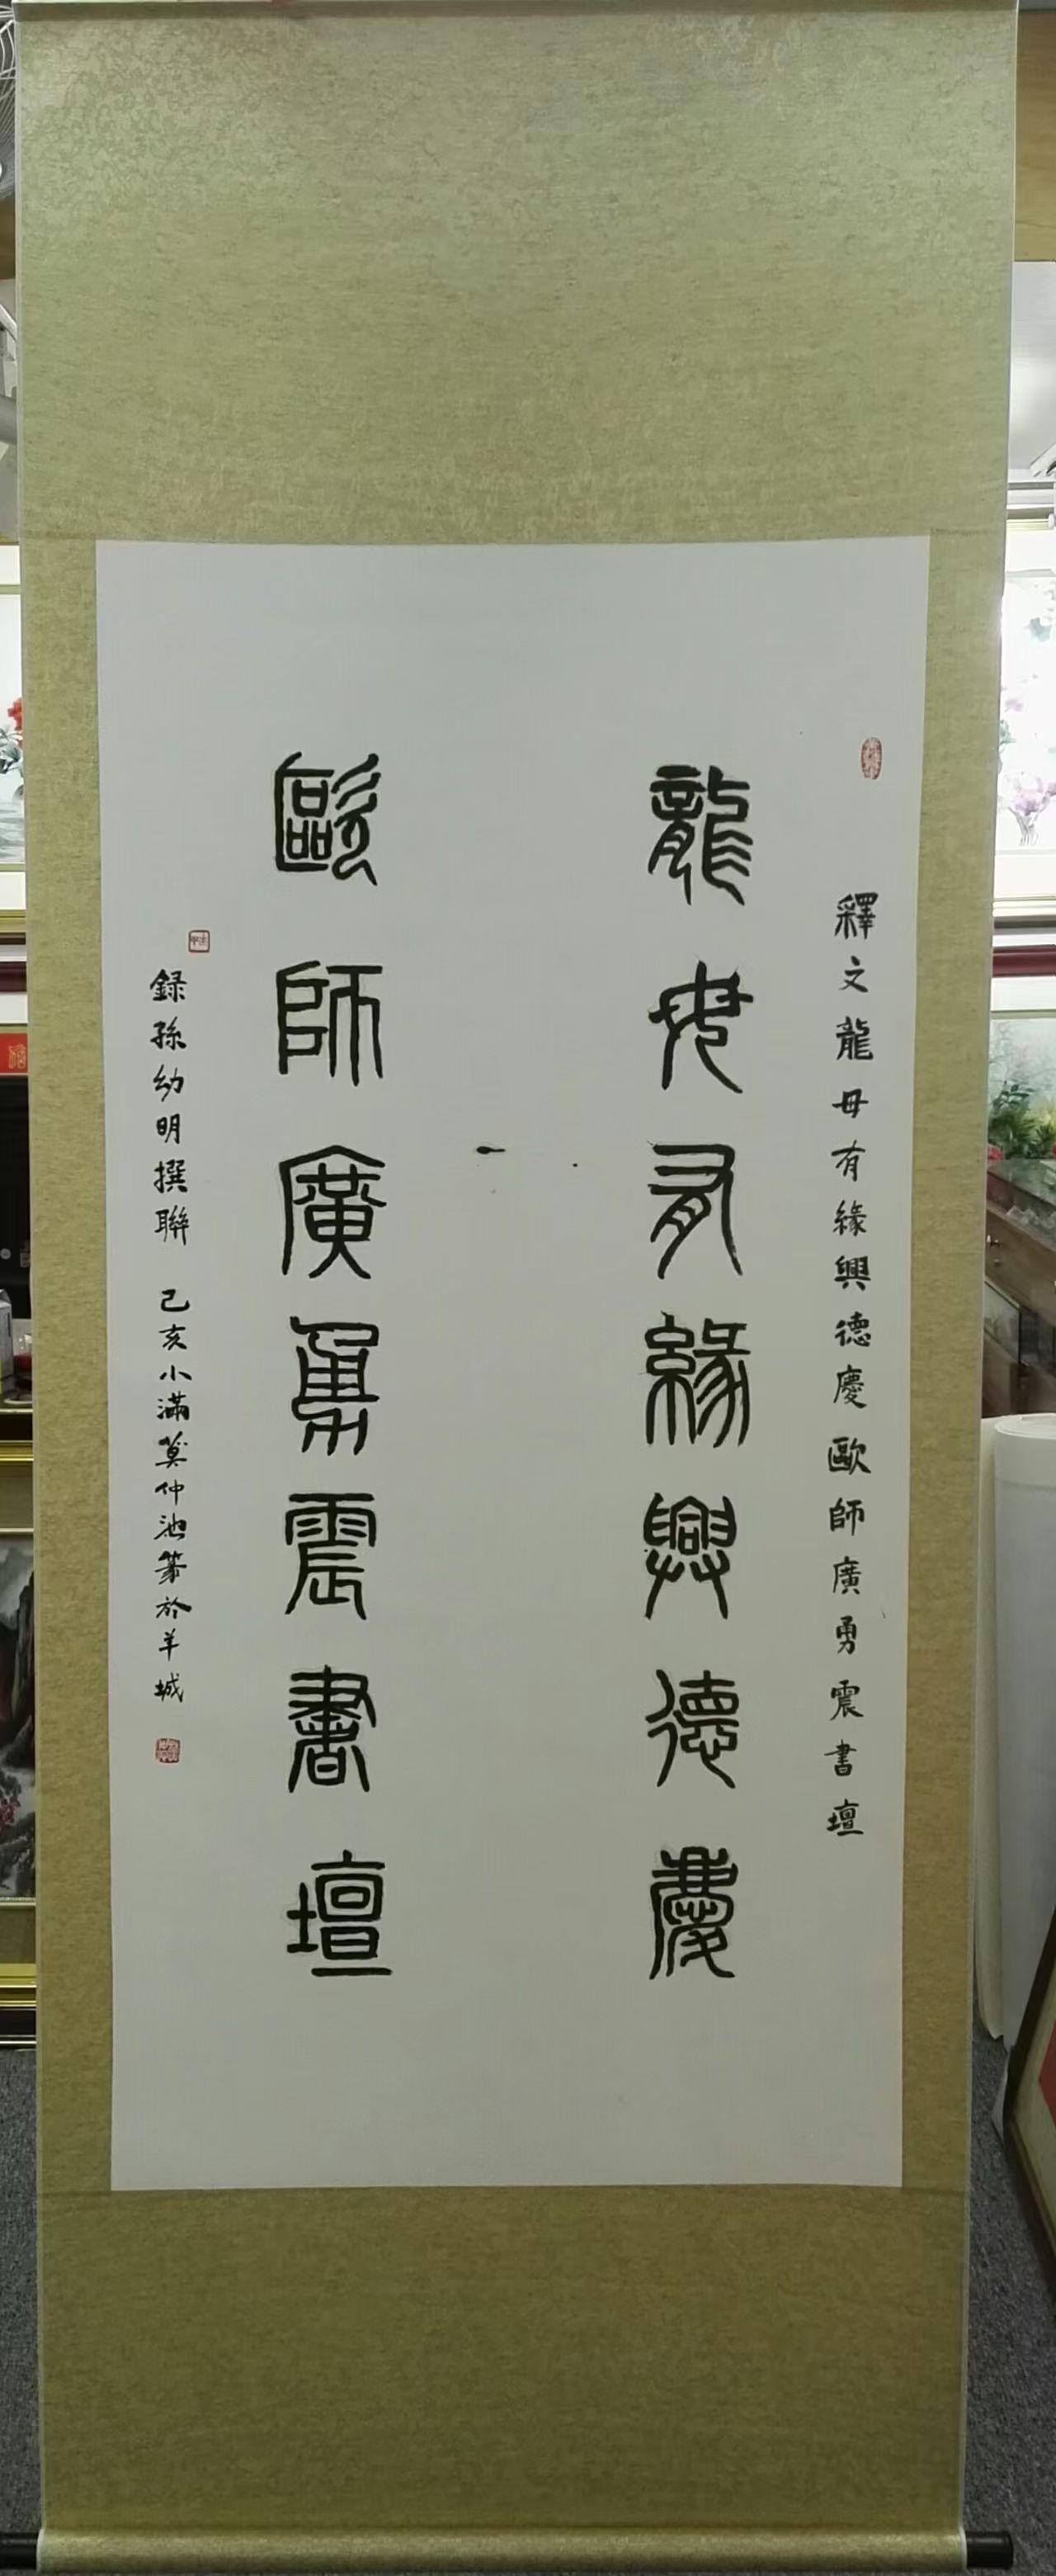 釋文龍母有緣興德慶歐師廣勇震書壇
龍母有緣興德慶
歐師廣勇震書壇
録孫幼明撰聯 己亥小滿莫仲池篆於羊城